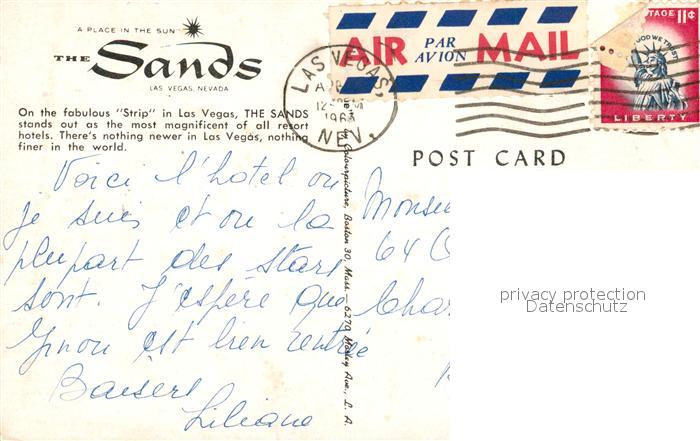 A PLACE IN THE SUN
THE Sands
LAS VEGAS, NEVADA
On the fabulous "Strip" in Las Vegas, THE SANDS
stands out as the most magnificent of all resort
hotels. There's nothing newer in Las Vegas, nothing
finer in the world.
AIR PAR AVION MAIL
LAS VEGAS,
NEV.
POSTAGE 11¢
IN GOD WE TRUST
LIBERTY
POST CARD
Voici l'hotel ou
je suis et ou la
plupart des stars
sont. J'espère que
est bien rentrée
Baisers
Liliane
by Colourpicture, Boston 30, Mass.—6270 Ave., L. A.
64
privacy protection
Datenschutz